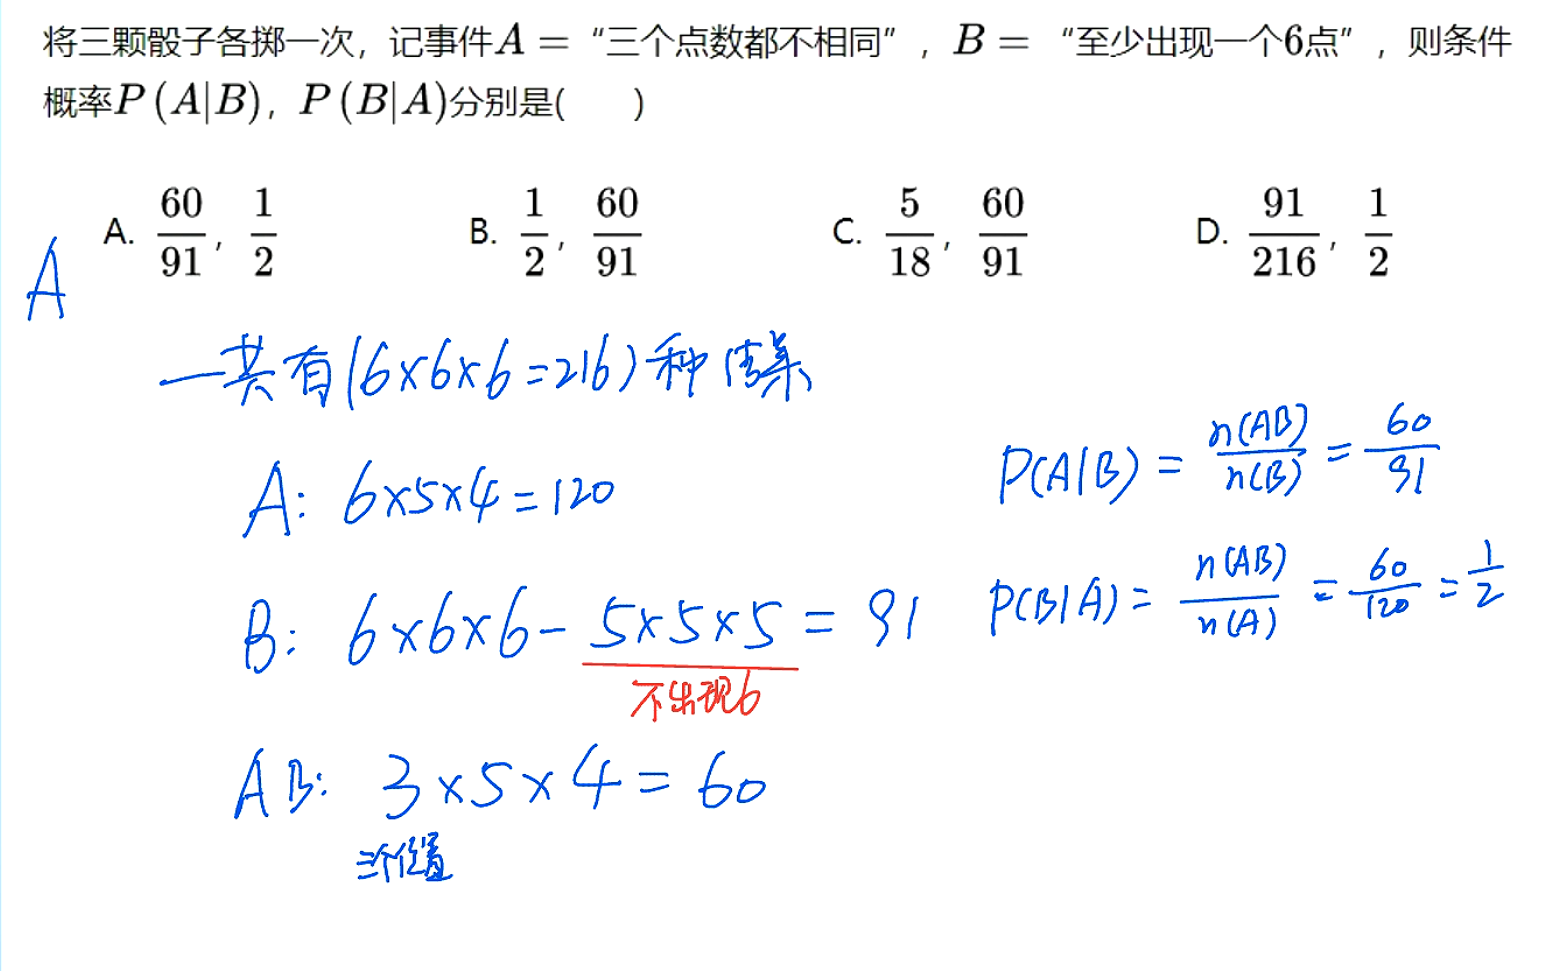 将三颗骰子各掷一次，记事件A＝“三个点数都不相同”，B＝“至少出现一个6点”，则条件
概率P(A|B)，P(B|A)分别是(　　)
A. 60/91，1/2　B. 1/2，60/91　C. 5/18，60/91　D. 91/216，1/2
A
一共有(6×6×6=216)种情景
A: 6×5×4=120
B: 6×6×6-5×5×5=91
不出现6
AB: 3×5×4=60
三个位置
P(A|B)=n(AB)/n(B)=60/91
P(B|A)=n(AB)/n(A)=60/120=1/2